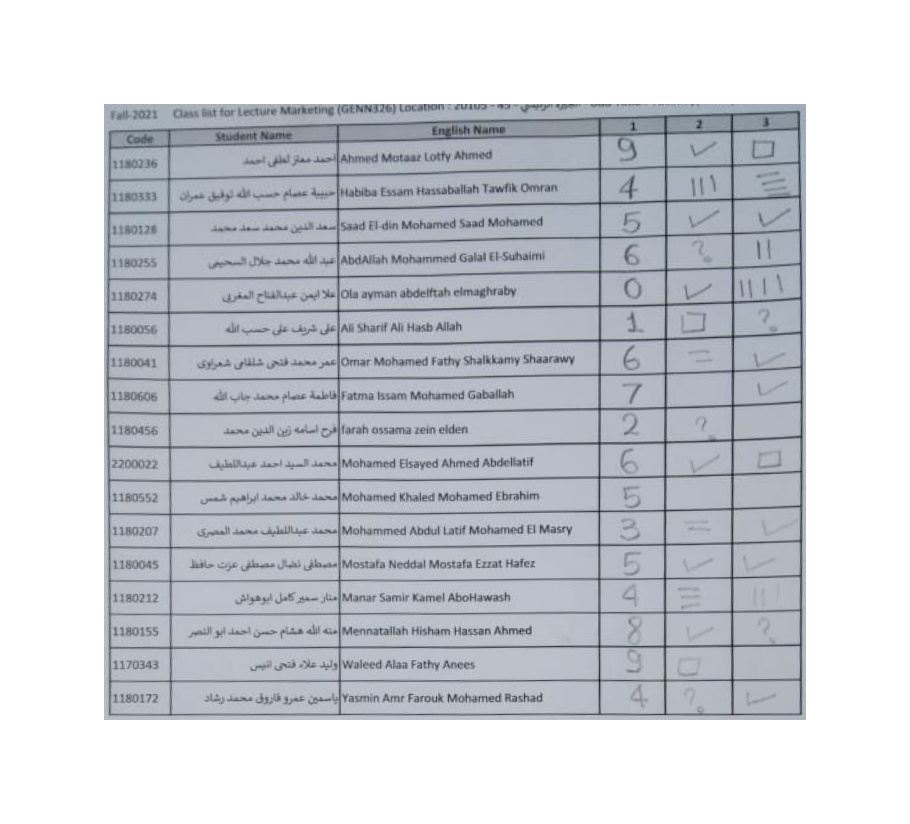 Fall-2021 Class list for Lecture Marketing (GENN326) Location : 20105 - 45 -
Code Student Name English Name 1 2 3
1180236 احمد معتز لطفى احمد Ahmed Motaaz Lotfy Ahmed 9 ✓ □
1180333 حبيبة عصام حسب الله توفيق عمران Habiba Essam Hassaballah Tawfik Omran 4 ||| ☰
1180128 سعد الدين محمد سعد محمد Saad El-din Mohamed Saad Mohamed 5 ✓ ✓
1180255 عبد الله محمد جلال السحيمى AbdAllah Mohammed Galal El-Suhaimi 6 ? ||
1180274 علا ايمن عبدالفتاح المغربى Ola ayman abdelftah elmaghraby 0 ✓ ||||
1180056 على شريف على حسب الله Ali Sharif Ali Hasb Allah 1 □ ?
1180041 عمر محمد فتحى شلقامى شعراوى Omar Mohamed Fathy Shalkkamy Shaarawy 6 = ✓
1180606 فاطمة عصام محمد جاب الله Fatma Issam Mohamed Gaballah 7 ✓
1180456 فرح اسامه زين الدين محمد farah ossama zein elden 2 ?
2200022 محمد السيد احمد عبداللطيف Mohamed Elsayed Ahmed Abdellatif 6 ✓ □
1180552 محمد خالد محمد ابراهيم شمس Mohamed Khaled Mohamed Ebrahim 5
1180207 محمد عبداللطيف محمد المصرى Mohammed Abdul Latif Mohamed El Masry 3 = ✓
1180045 مصطفى نضال مصطفى عزت حافظ Mostafa Neddal Mostafa Ezzat Hafez 5 ✓ ✓
1180212 منار سمير كامل ابوهواش Manar Samir Kamel AboHawash 4 ☰ |||
1180155 منه الله هشام حسن احمد ابو النصر Mennatallah Hisham Hassan Ahmed 8 ✓ ?
1170343 وليد علاء فتحى انيس Waleed Alaa Fathy Anees 9 □
1180172 ياسمين عمرو فاروق محمد رشاد Yasmin Amr Farouk Mohamed Rashad 4 ? ✓